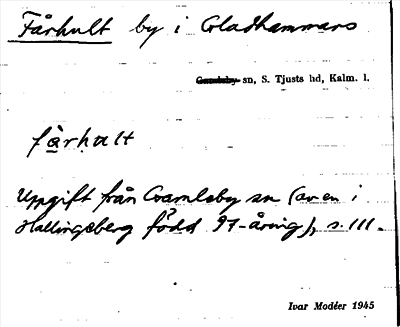 Fårhult by i Gladhammars
Gamleby sn, S. Tjusts hd, Kalm. l.
fàrhult
Uppgift från Gamleby sn (av en i
Hallingeberg född 97-åring), s. 111.
Ivar Modéer 1945